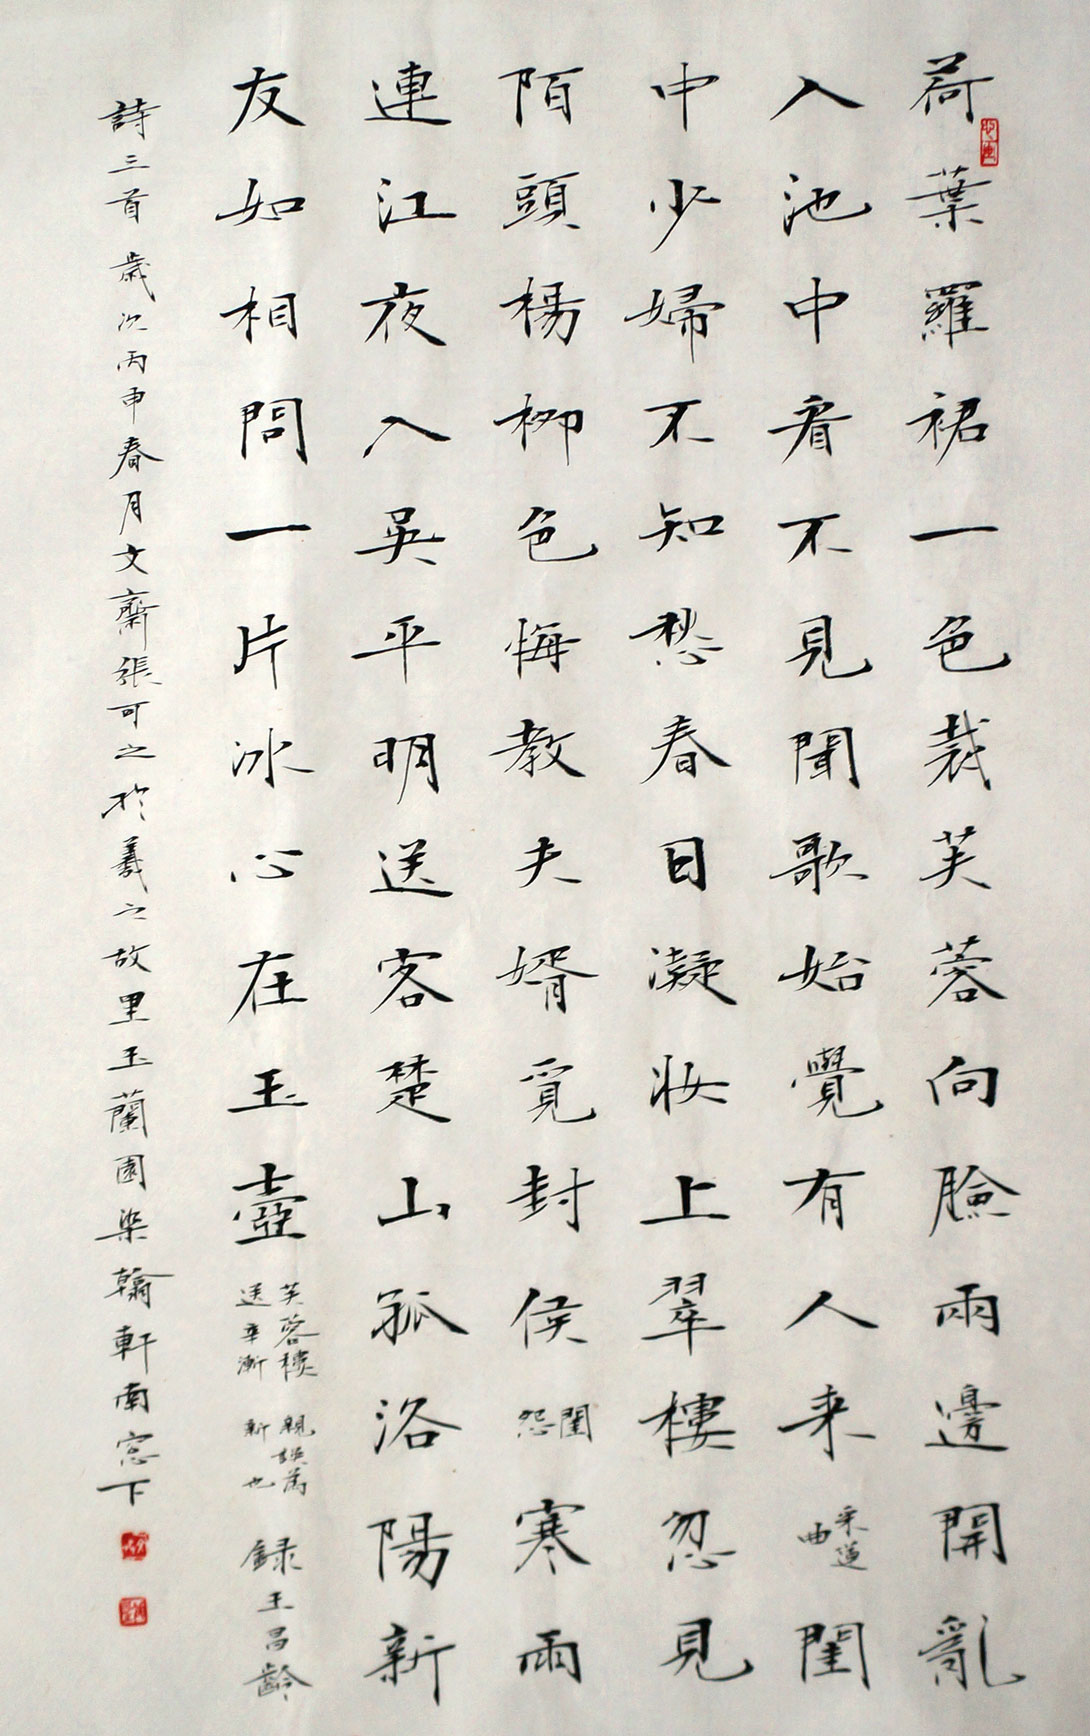 荷葉羅裙一色裁芙蓉向臉兩邊開亂
入池中看不見聞歌始覺有人来 采蓮曲 閨
中少婦不知愁春日凝妝上翠樓忽見
陌頭楊柳色悔教夫婿覓封侯 閨怨 寒雨
連江夜入吳平明送客楚山孤洛陽新
友如相問一片冰心在玉壺 芙蓉樓送辛漸 親誤為新也 録王昌齡
詩三首歲次丙申春月文齋張可之於羲之故里玉蘭園染翰軒南窓下